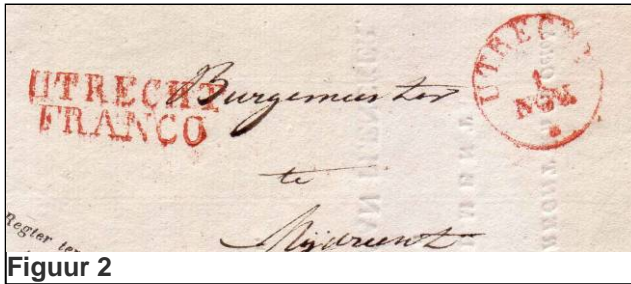 UTRECHT
FRANCO
Burgemeester
UTRECHT
1
NOV.
te
Mijdrecht
Regter ter
Figuur 2